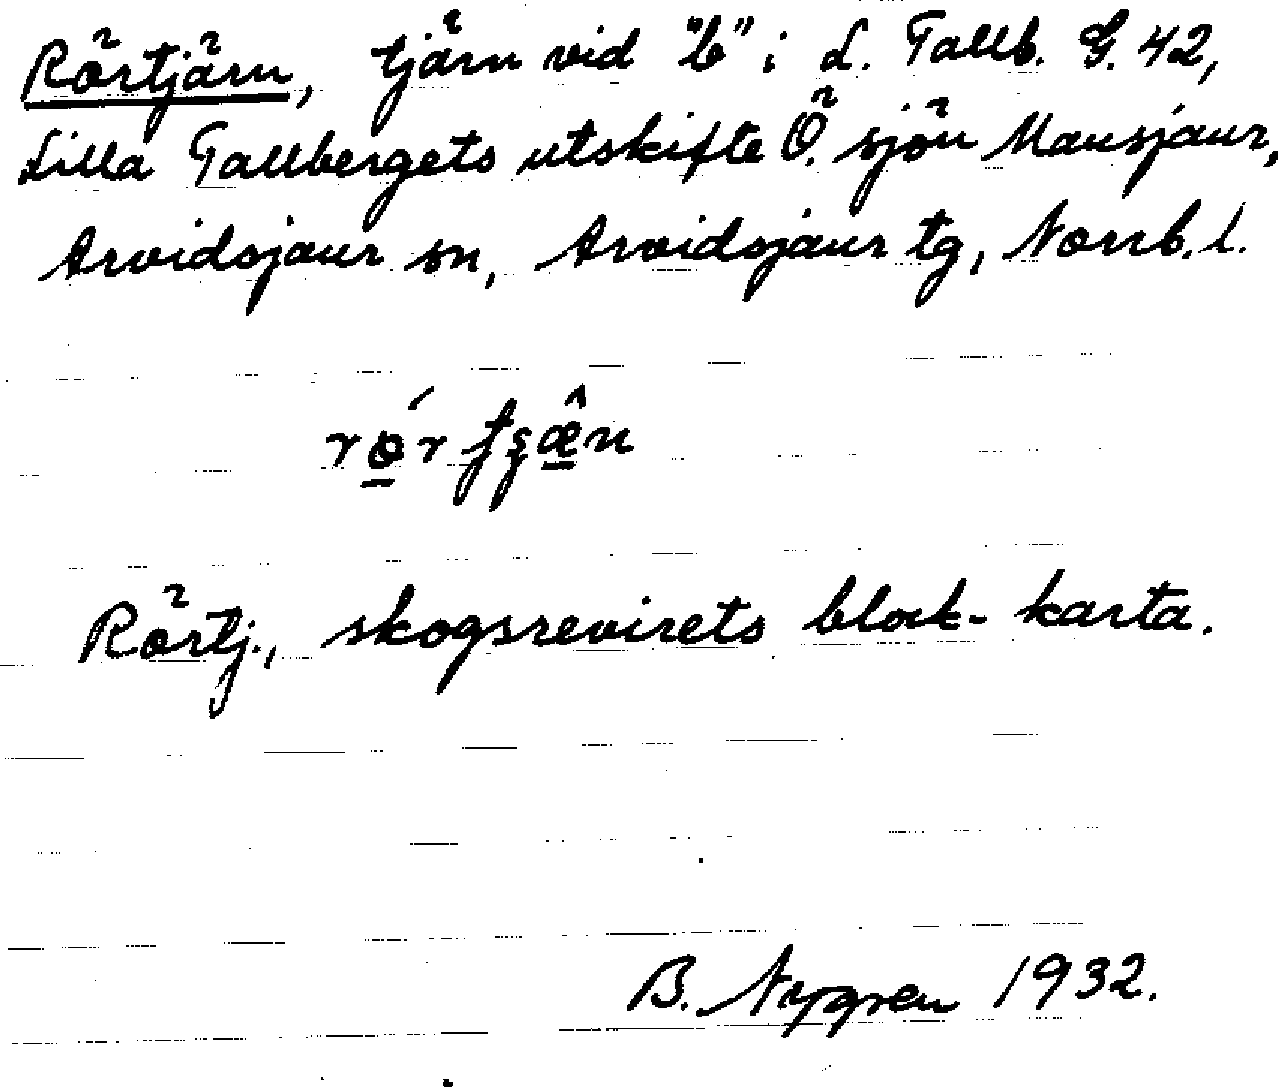 Rörtjärn, tjärn vid "b" i L. Tallb. G. 42,
Lilla Tallbergets utskifte Ö. sjön Mausjaur,
Arvidsjaur sn, Arvidsjaur tg, Norrb. l.
Rörtj., skogsrevirets block-karta.
B. Nygren 1932.